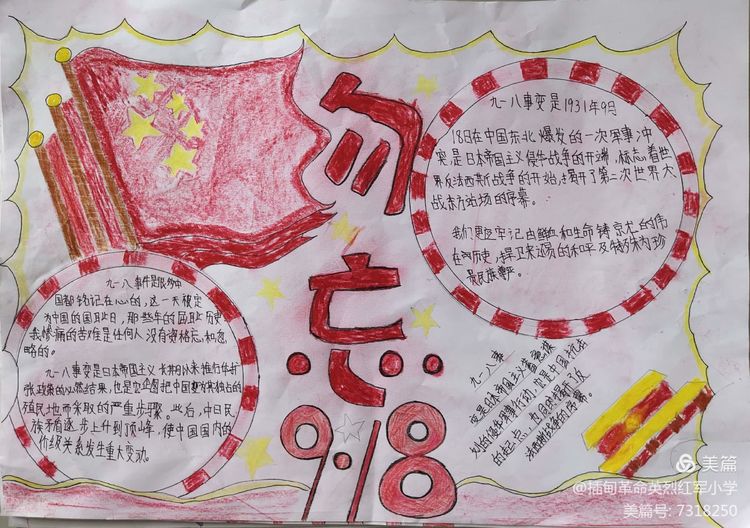 勿
忘
9.18
九一八事变是1931年9月
18日在中国东北爆发的一次军事冲
突,是日本帝国主义侵华战争的开端,标志着世
界反法西斯战争的开始,揭开了第二次世界大
战东方战场的序幕。
我们更应牢记由鲜血和生命铸
的历史,捍卫来之不易的和平
民族尊严。
九一八事件是很多中
国都铭记在心的,这一天被定
为中国的国耻日,那些年的国耻历史
我惨痛的苦难是任何人没有资格忘和忽
略的。
九一八事变是日本帝国主义长期以来推行华扩
张政策的必然结果,也是它企图把中国变为其独占的
殖民地而采取的严重步骤。此后,中日民
族矛盾逐步上升到顶峰,使中国国内的
价级关系发生重大变动。
九一八事
变是日本帝国主义蓄意
的侵华军事行动,也是中国抗
的起点,也同时揭开了反
法西斯战争的序幕。
美篇
@插甸革命英烈红军小学
美篇号: 7318250